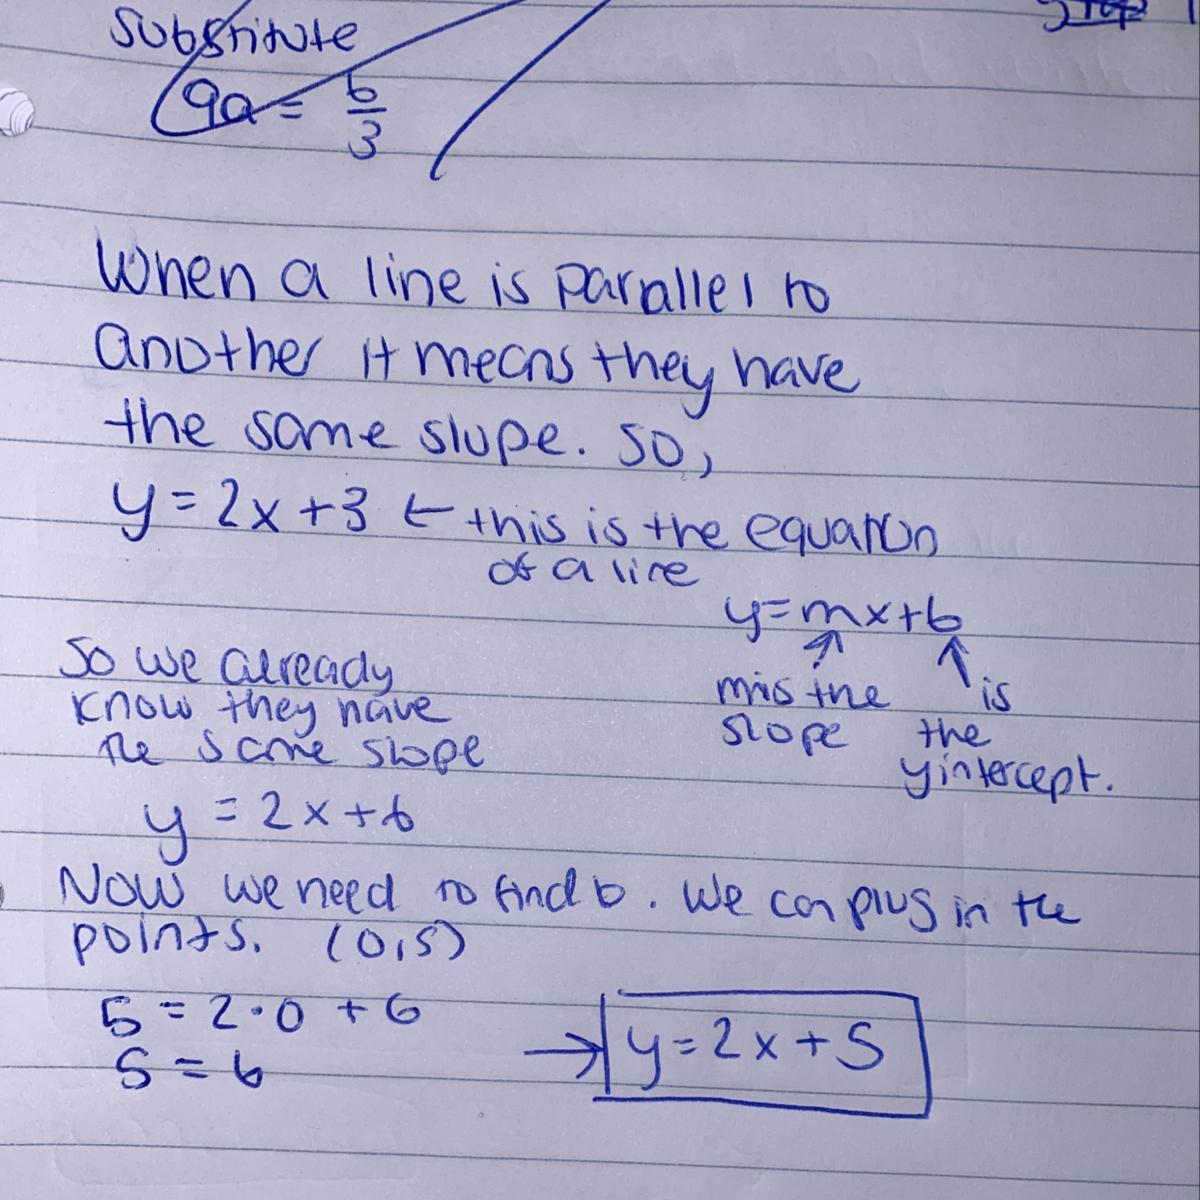 Substitute
9a = b/3
When a line is parallel to
another it means they have
the same slope. So,
y = 2x + 3 ← this is the equation
of a line
y = mx + b
So we already
know they have
the same slope
m is the
slope
↑ is
the
y intercept.
y = 2x + b
Now we need to find b. We can plug in the
points. (0,5)
5 = 2·0 + b
5 = b
→ y = 2x + 5